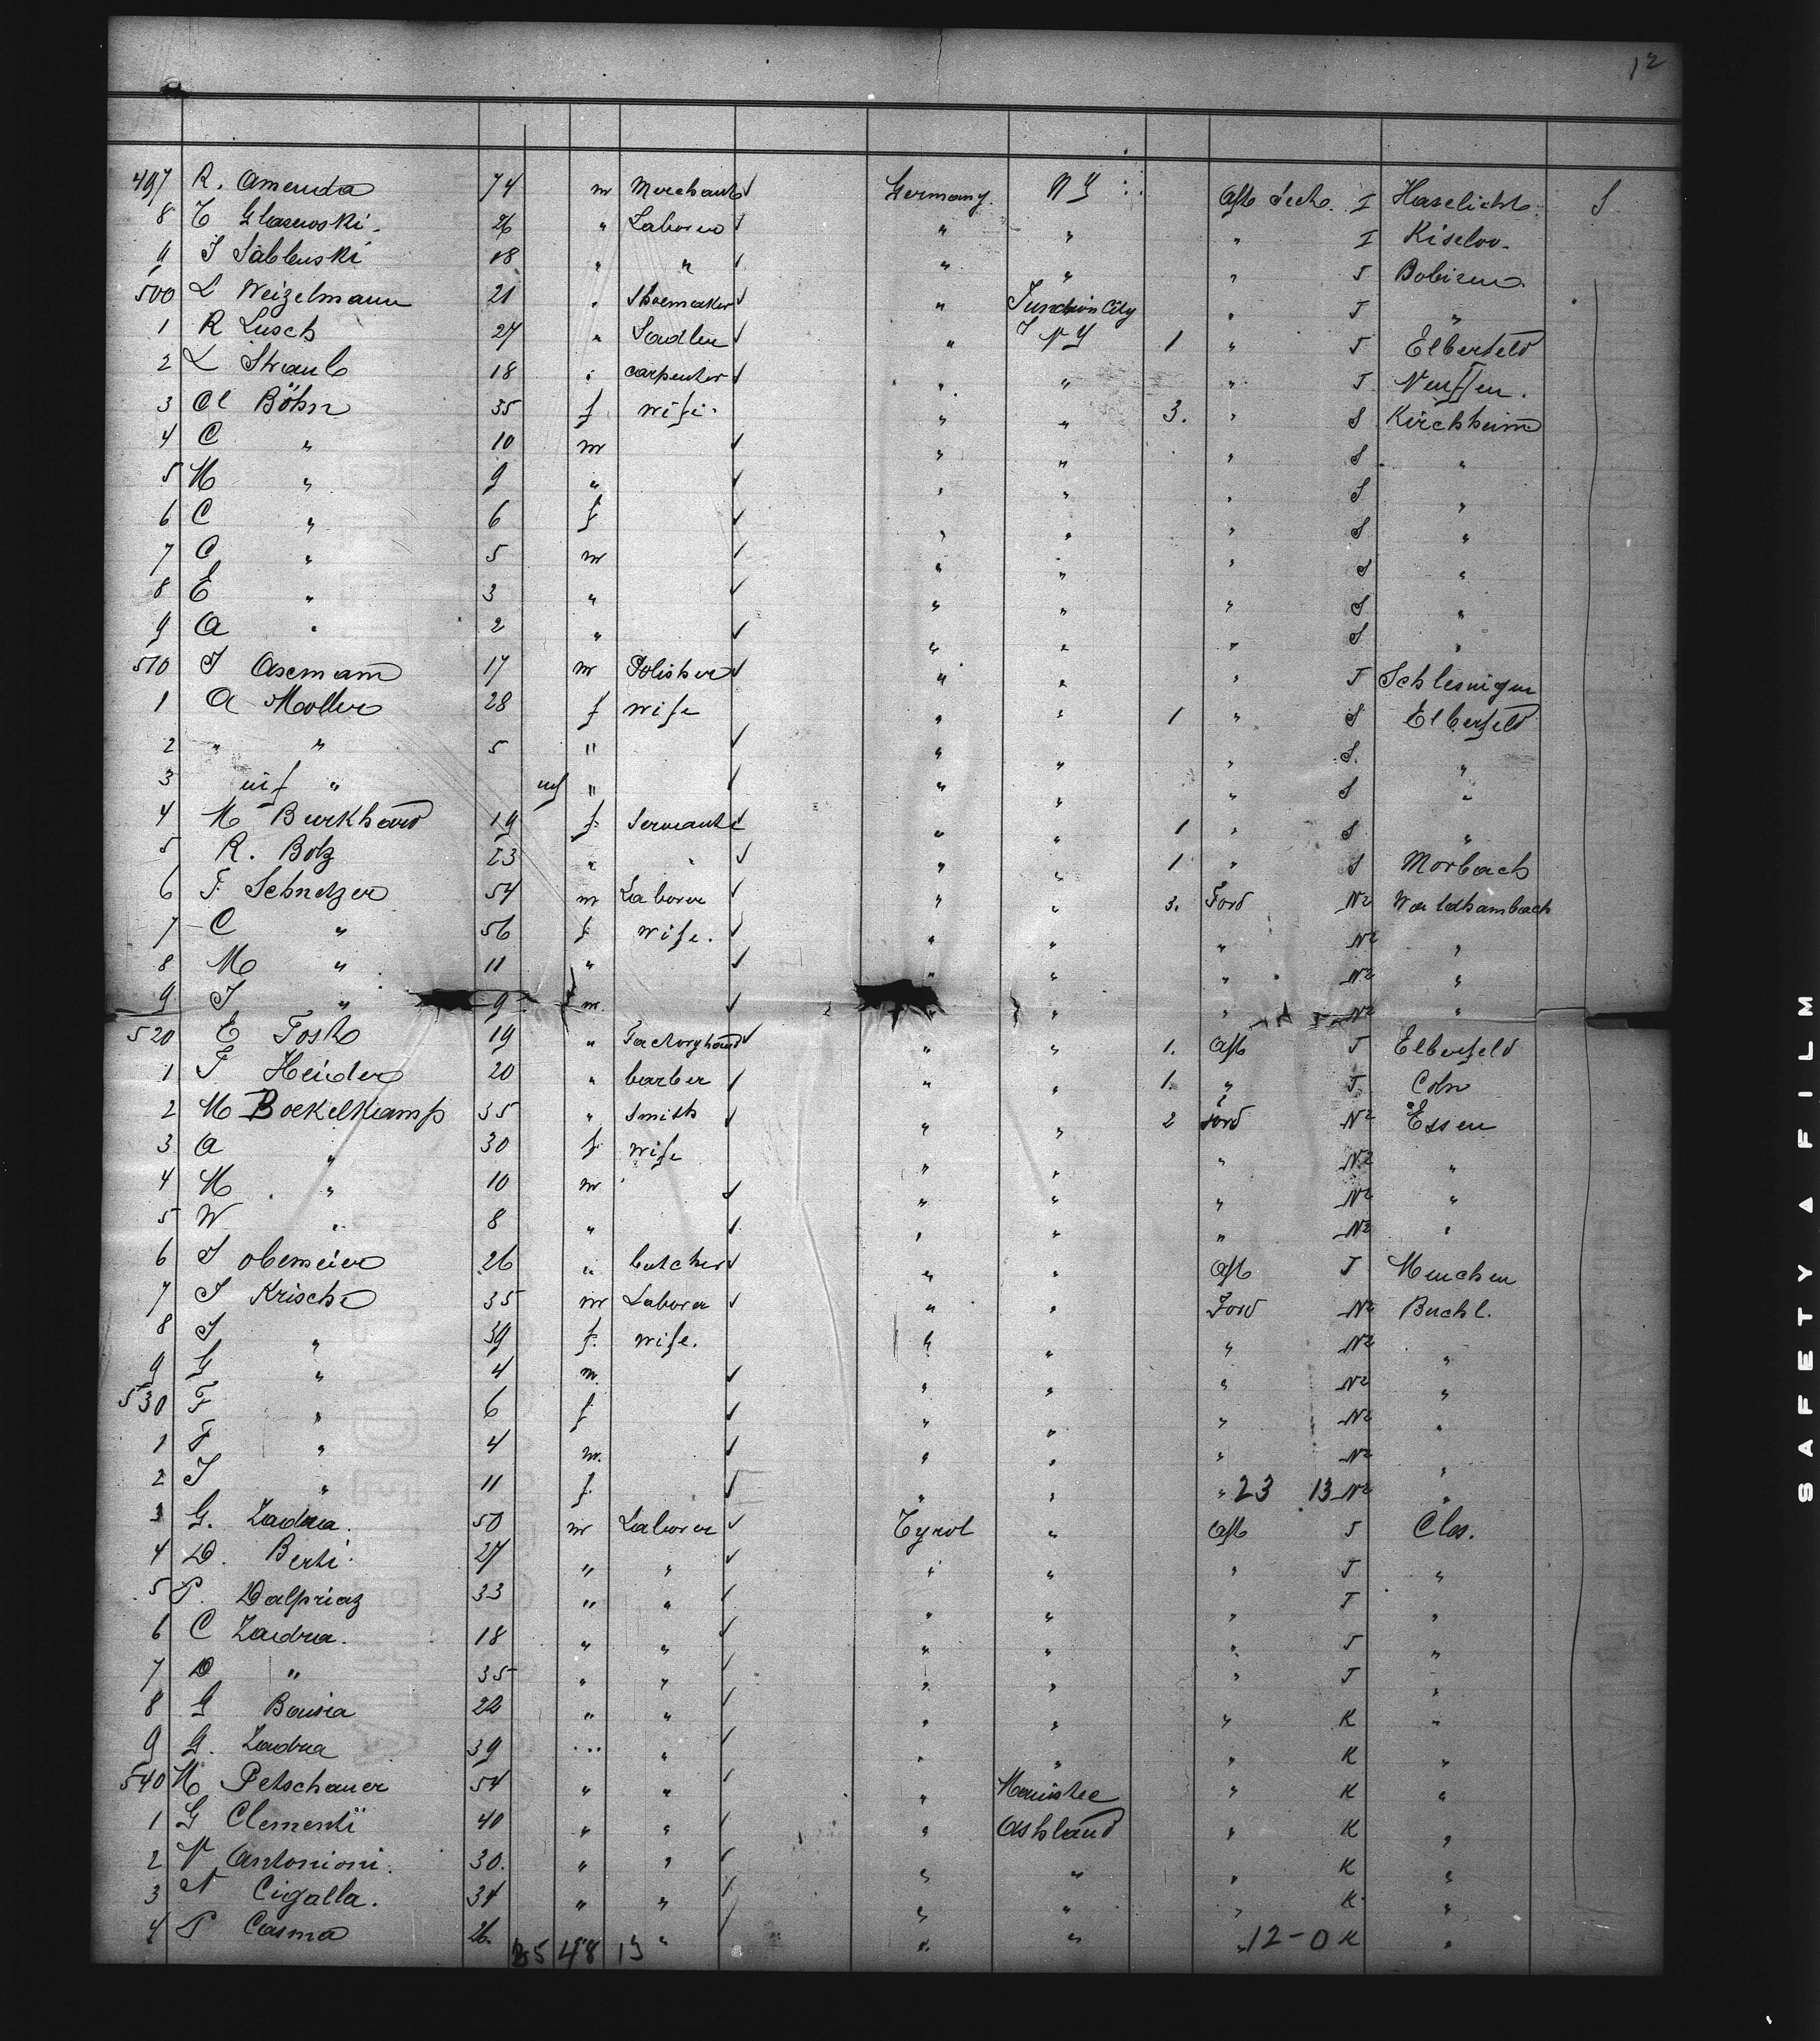 12
497 R. Amenda 74 m Merchant Germany N Y Aft deck. I Haselicht S
8 C Glasewski 26 " Laborer " " " I Kiselow.
9 J Sablenski 18 " " " " " J Bobizen
500 L Weizelmann 21 " Shoemaker " Junction City " J "
1 R Lusch 27 " Sadler " N Y 1 " J Elberfeld
2 L Straub 18 " carpenter " " " J Neuffen.
3 A Böhn 35 f wife " " 3. " S Kirchheim
4 C " 10 m " " " S "
5 M " 9 " " " " S "
6 C " 6 f " " " S "
7 C " 5 m " " " S "
8 E " 3 " " " " S "
9 A " 2 " " " " S "
510 J Asemann 17 m Polisher " " " J Schlesnigen
1 A Moller 28 f wife " " 1 " S Elberfeld
2 " " 5 " " " " S. "
3 inf " inf " " " " S "
4 M Burkhard 19 f Servant " " 1 " S "
5 R. Bolz 23 " " " " 1 " S Morbach
6 F Schnetzer 54 m Laborer " " 3. Ford N2 Waldhambach
7 C " 56 f wife. " " " N2 "
8 M " 11 " " " " N2 "
9 J " 9 m. " " " N2 "
520 E Tosh 19 " Factoryhand " " 1. Aft J Elberfeld
1 F Heider 20 " barber " " 1. " J Coln
2 M Boekelkamp 35 " Smith " " 2 Ford N2 Essen
3 A " 30 f wife " " " N2 "
4 M " 10 m " " " N2 "
5 W " 8 " " " " N2 "
6 J obemeier 26 " butcher " " Aft J Menchen
7 J Krische 35 m Laborer " " Ford N2 Buchl.
8 J " 39 f. wife. " " " N2 "
9 G " 4 m. " " " N2 "
530 F " 6 f " " " N2 "
1 F " 4 m. " " " N2 "
2 J " 11 f. " " " 23 13 N2 "
3 G. Zadra. 50 m Laborer Tyrol " Aft J Cles.
4 D. Berti 27 " " " " " J "
5 P. Dalpriaz 33 " " " " " J "
6 C Zadra. 18 " " " " " J "
7 D " 35 " " " " " J "
8 G Bousia 22 " " " " " K "
9 G. Zadra 39 " " " " " K "
540 M Petschauer 54 " " " Manistee " K "
1 G Clementi 40 " " " Ashland " K "
2 N Antonioni. 30. " " " " " K "
3 N Cigalla. 34 " " " " " K "
4 P Casma 26. " " " " " 12-0 K "
48 15
SAFETY FILM